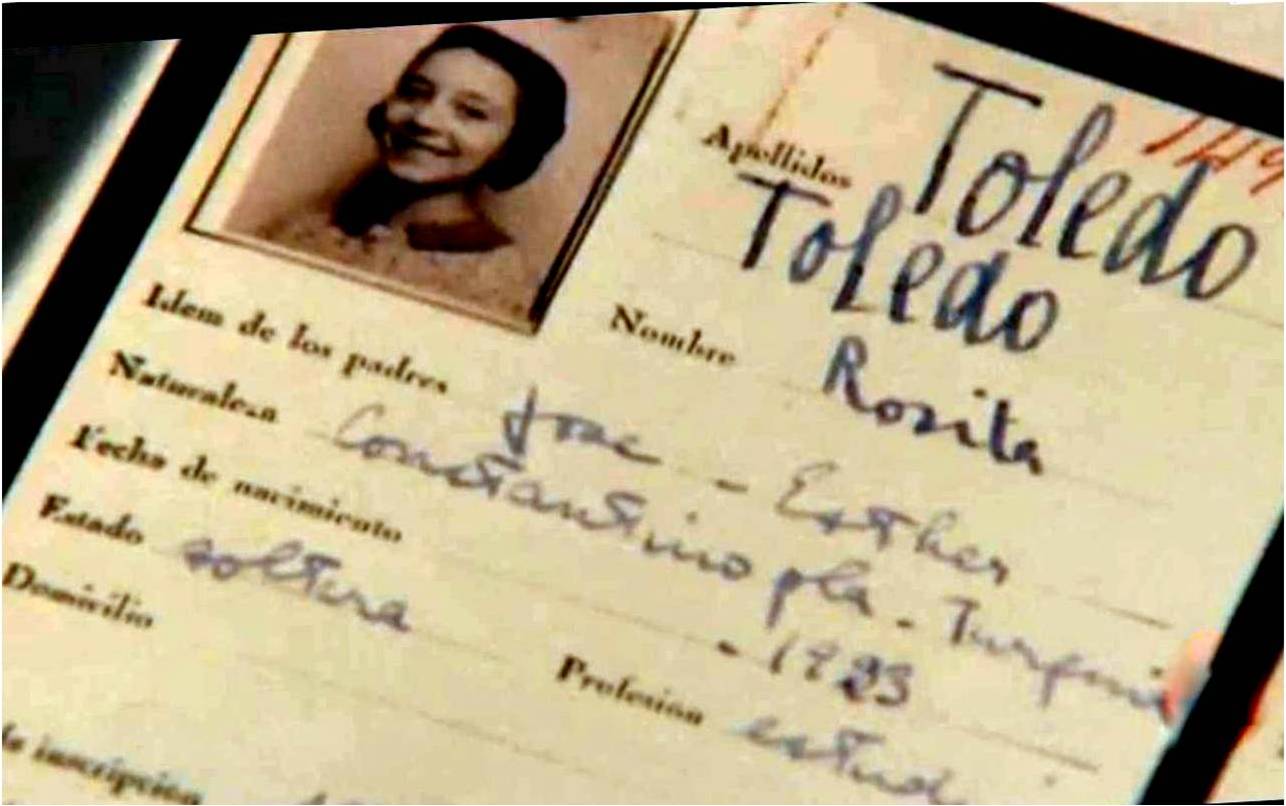 Toledo
Apellidos Toledo
Nombre Rosita
Idem de los padres - Esther
Naturaleza Constantinopla - Turquia
Fecha de nacimiento -
Estado soltera
Domicilio Profesion
inscripción